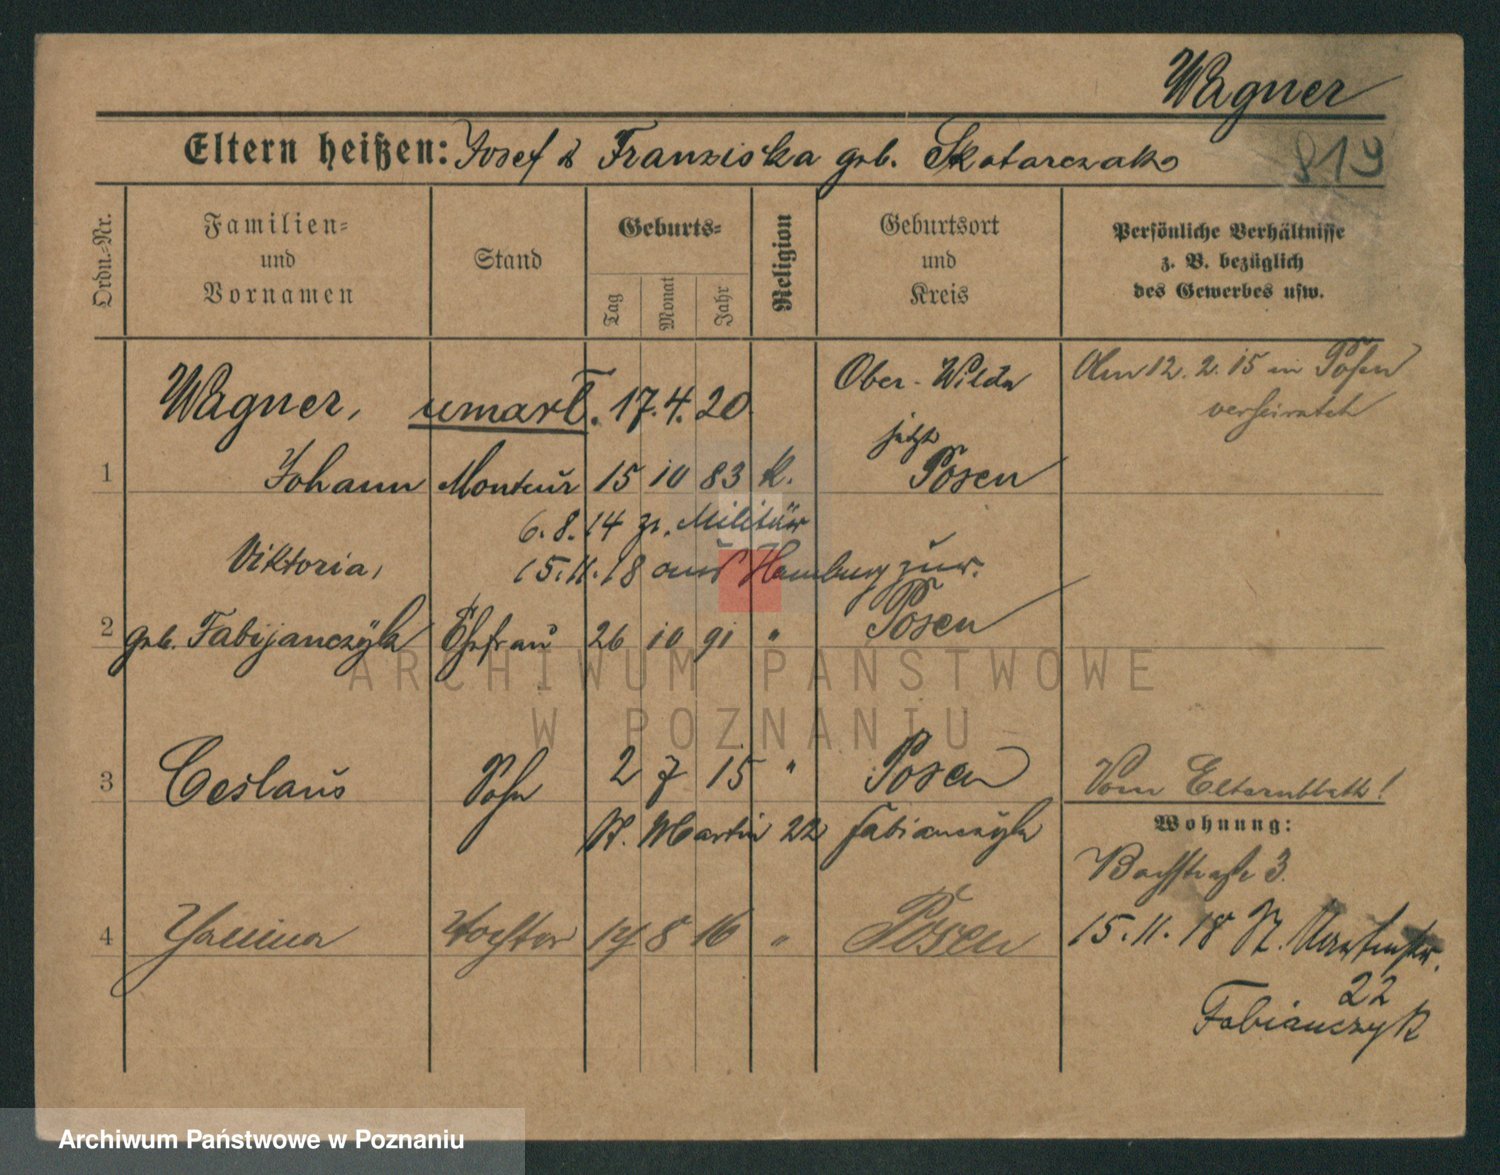 Wagner
819
Eltern heißen: Josef & Franziska geb. Skotarczak
Ordn.-Nr.
Familien- und Vornamen
Stand
Geburts-
Tag
Monat
Jahr
Religion
Geburtsort und Kreis
Persönliche Verhältnisse z. B. bezüglich des Gewerbes usw.
Wagner, 17.4.20
Ober-Wilda
Am 12.2.15 in Posen
verheiratet
jetzt
1 Johann Monteur 15 10 83 k. Posen
6.8.14 z. Militär
Viktoria, 15.11.18 aus Hamburg zur.
2 geb. Fabijanczyk Ehefrau 26 10 91 " Posen
3 Ceslaus Sohn 2 7 15 " Posen
Vom Elternblatt!
St. Martin 22 Fabianczyk
Wohnung:
Bachstraße 3.
4 Janina Tochter 14 8 16 " Posen
15.11.18 St. Martinstr.
22
Fabianczyk
ARCHIWUM PAŃSTWOWE
W POZNANIU
Archiwum Państwowe w Poznaniu